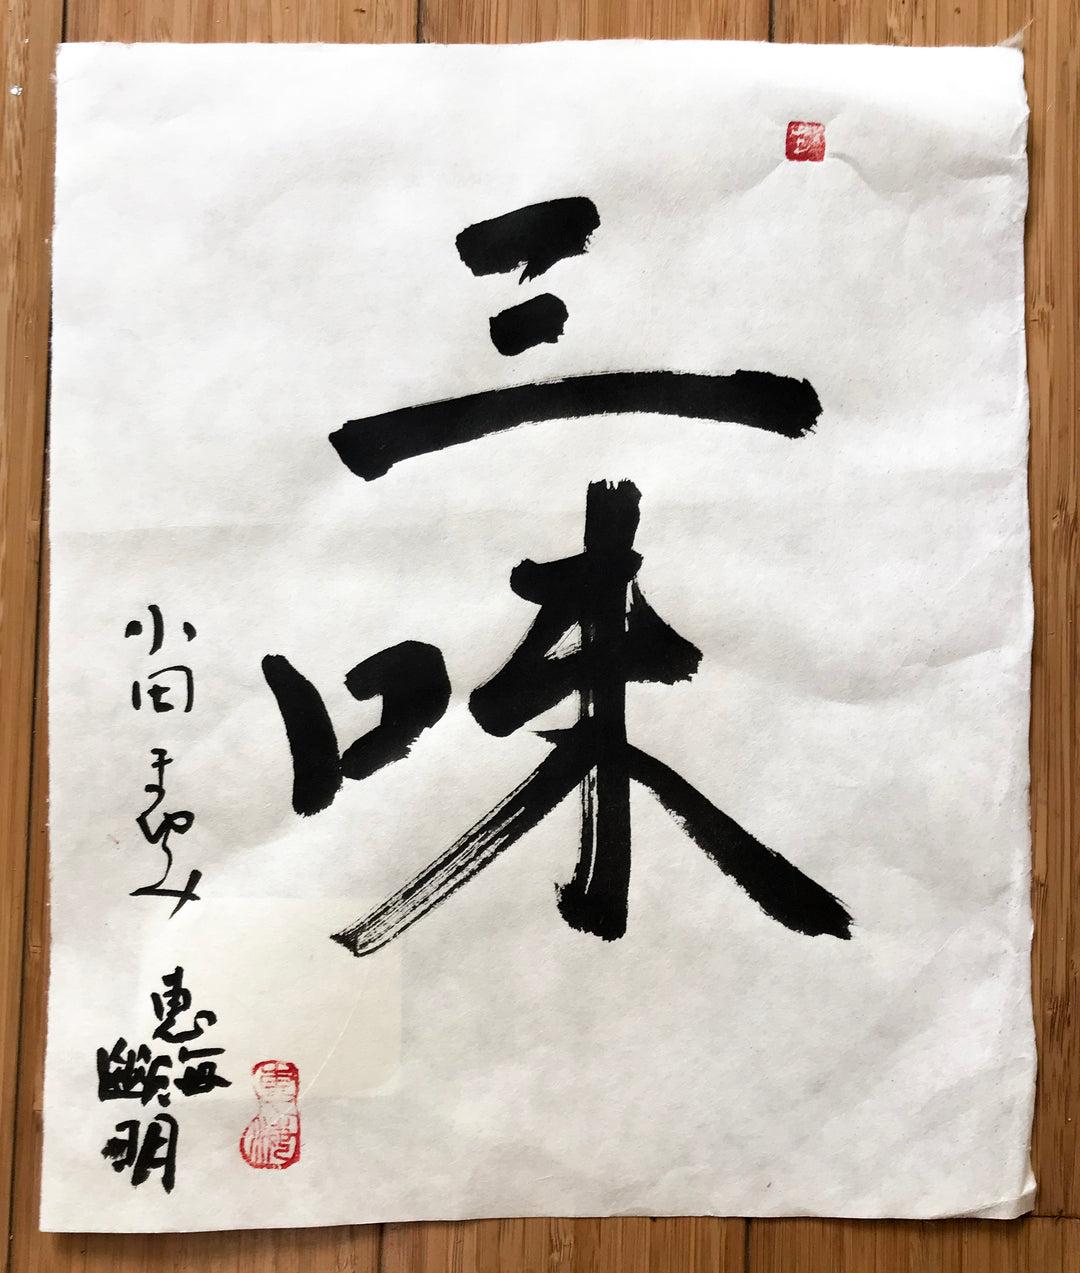 三味
小田まゆみ
惠海
明